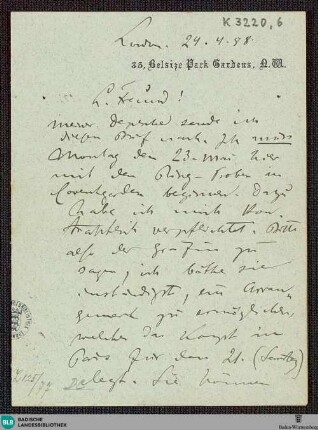 K 3220,6
London. 24.4.98.
35, Belsize Park Gardens, N.W.
L. Freund!
Meiner Depesche sende ich
diesen Brief nach. Ich muss
Montag den 23. Mai hier
mit den Ring-Proben in
Coventgarden beginnen. Dazu
habe ich mich
verpflichtet. Bitte
also der Gräfin zu
sagen, ich bäthe sie
inständigst, ein Arran-
gement zu ermöglichen,
welches das Konzert in
Paris für den 21. (Samstag)
verlegt. Sie können
BLB BADISCHE
LANDESBIBLIOTHEK
Baden-Württemberg